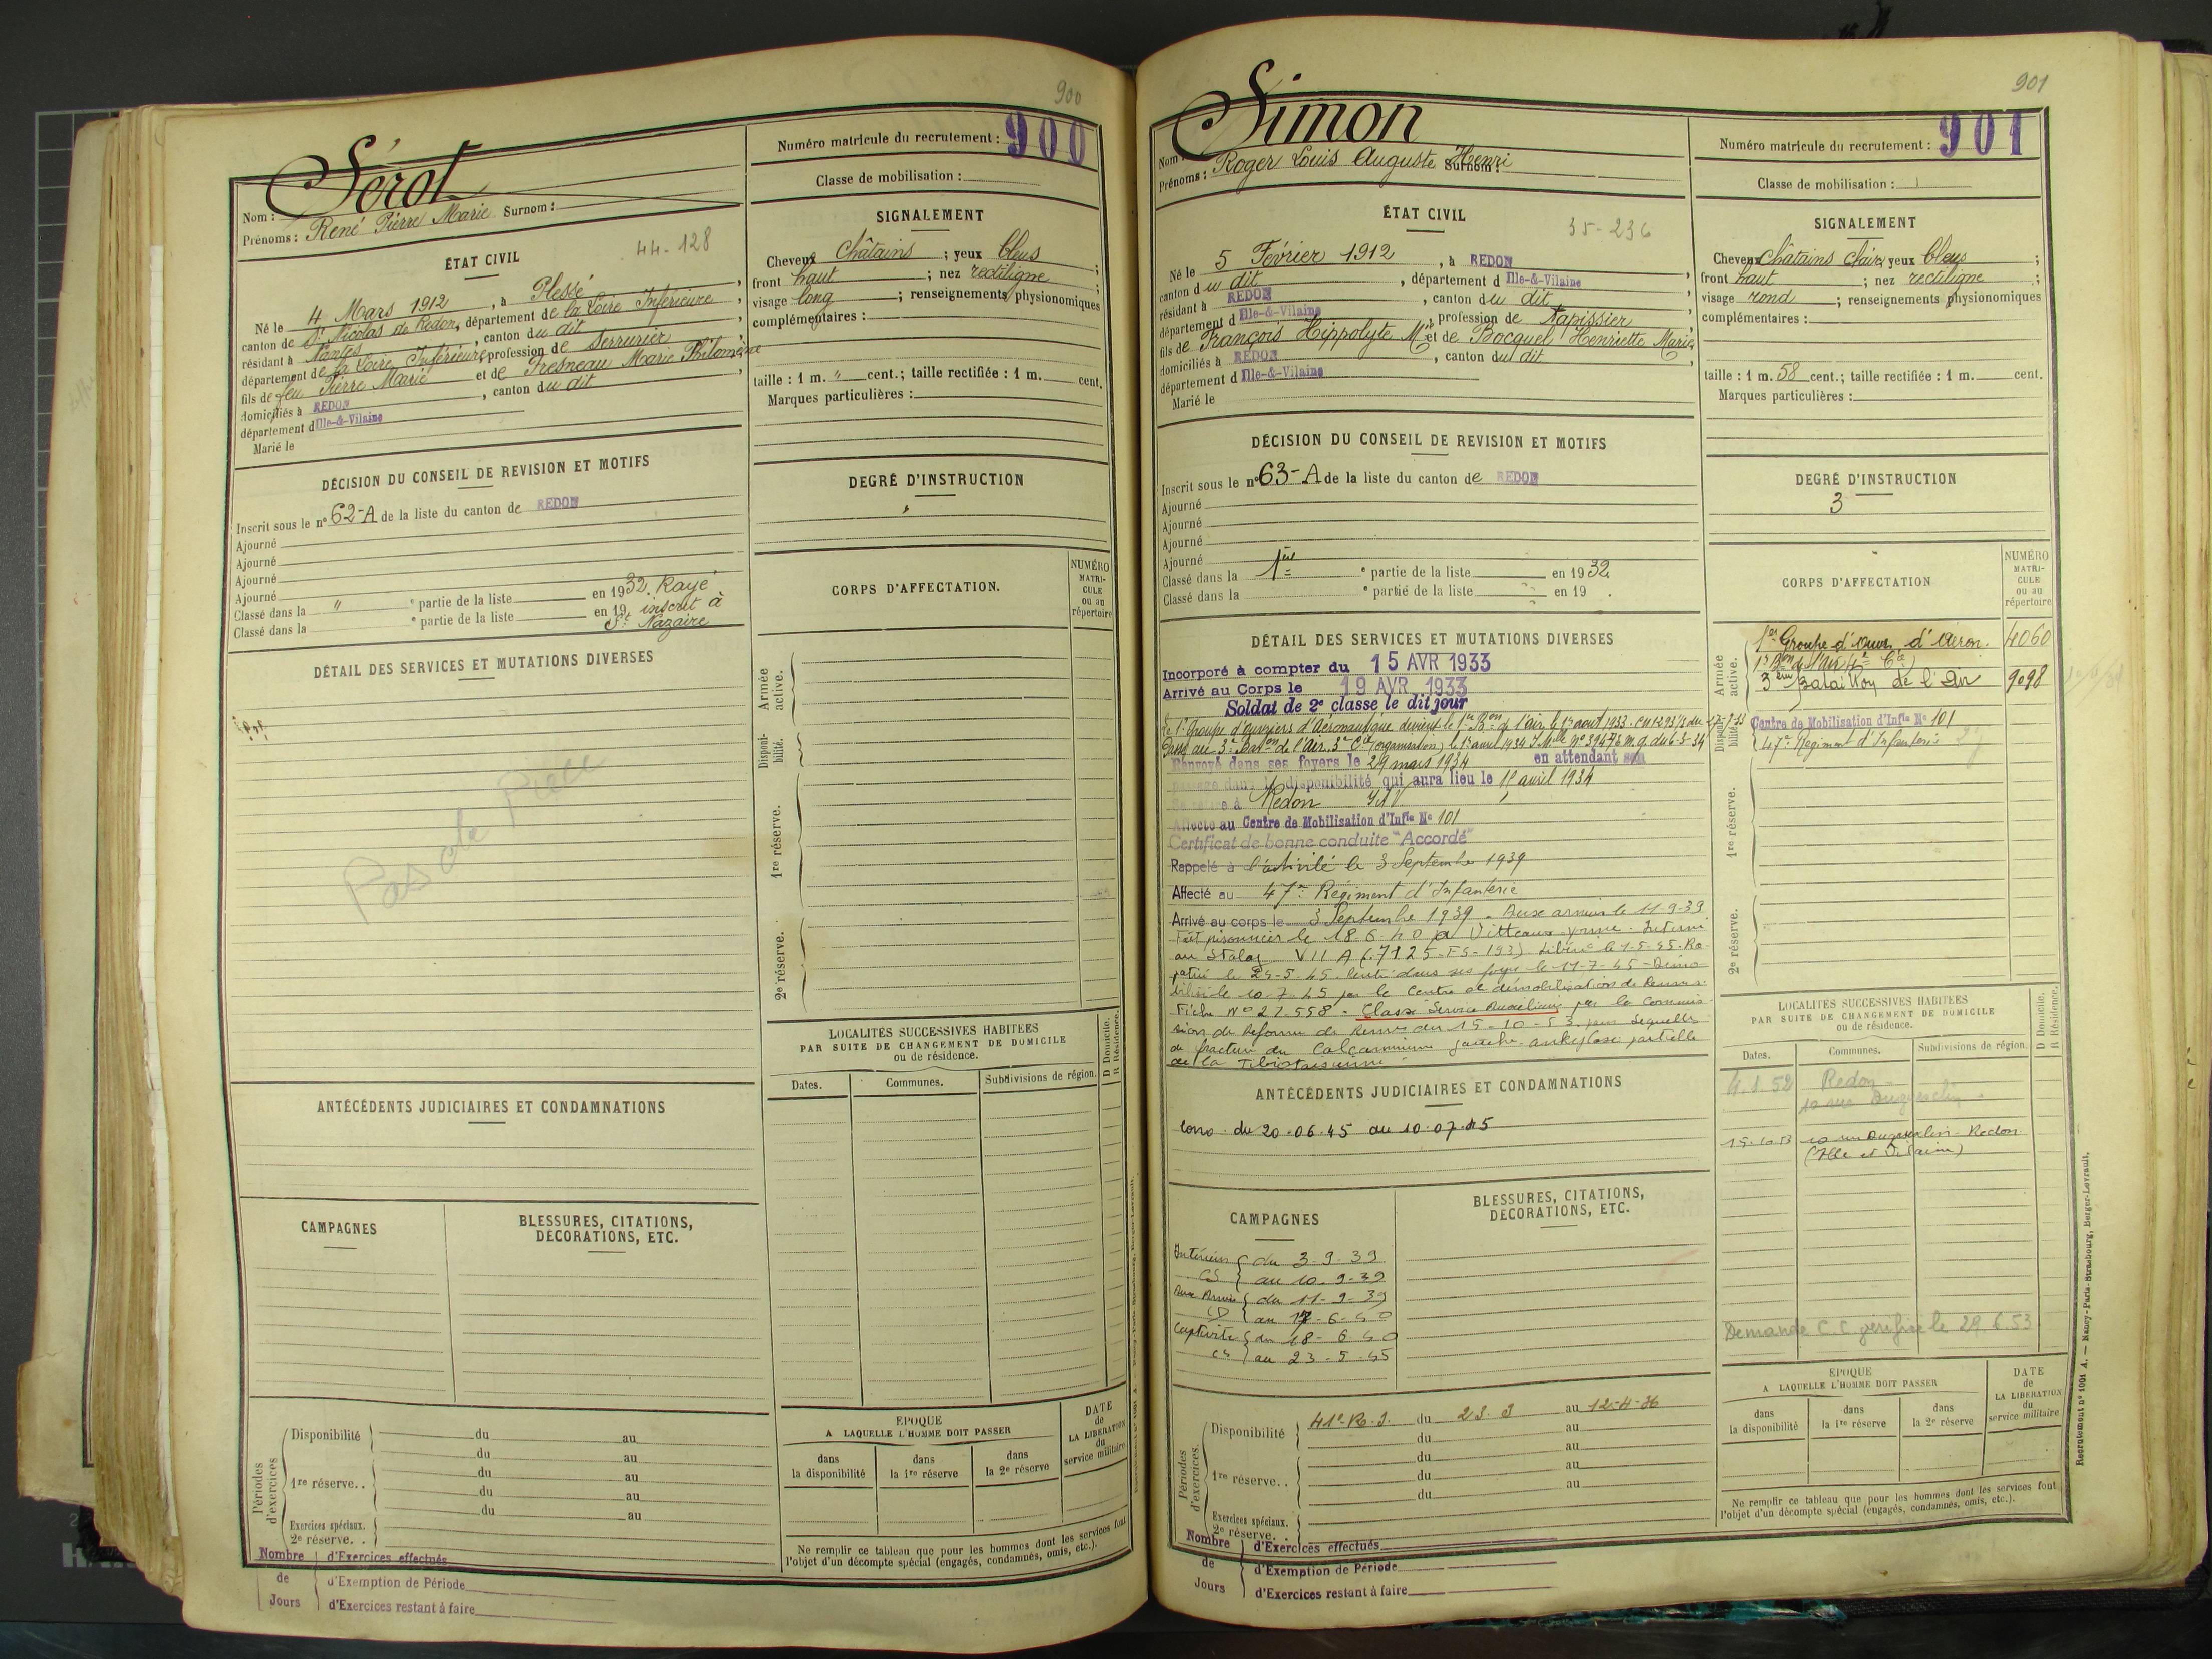 900
Numéro matricule du recrutement : 900
Classe de mobilisation :
Nom : Sérot
Prénoms : René Pierre Marie Surnom :
ÉTAT CIVIL
44-128
Né le 4 Mars 1912, à Plessé
canton de St Nicolas de Redon, département de la Loire Inférieure,
résidant à Nantes, canton du dit,
département de la Loire Inférieure, profession de Serrurier,
fils de feu Pierre Marie et de Fresneau Marie Philomène
domiciliés à REDON, canton du dit,
département d Ille-&-Vilaine
Marié le
SIGNALEMENT
Cheveux châtains ; yeux bleus ;
front haut ; nez rectiligne ;
visage long ; renseignements physionomiques
complémentaires :
taille : 1 m. " cent.; taille rectifiée : 1 m. cent.
Marques particulières :
DÉCISION DU CONSEIL DE REVISION ET MOTIFS
Inscrit sous le n° 62-A de la liste du canton de REDON
Ajourné
Ajourné
Ajourné
Ajourné
Classé dans la " e partie de la liste en 1932. Rayé
Classé dans la e partie de la liste en 19 inscrit à
St Nazaire
DEGRÉ D'INSTRUCTION
CORPS D'AFFECTATION.
NUMÉRO
MATRI-
CULE
ou au
répertoire
Armée active.
Disponi-bilité.
1re réserve.
2e réserve.
DÉTAIL DES SERVICES ET MUTATIONS DIVERSES
Pas de Pièce
LOCALITÉS SUCCESSIVES HABITÉES
PAR SUITE DE CHANGEMENT DE DOMICILE
ou de résidence.
D Domicile.
R Résidence.
Dates. Communes. Subdivisions de région.
ANTÉCÉDENTS JUDICIAIRES ET CONDAMNATIONS
CAMPAGNES
BLESSURES, CITATIONS,
DÉCORATIONS, ETC.
Périodes d'exercices
Disponibilité du au
du au
1re réserve. . du au
du au
du au
Exercices spéciaux.
2e réserve. .
ÉPOQUE
A LAQUELLE L'HOMME DOIT PASSER
dans la disponibilité
dans la 1re réserve
dans la 2e réserve
DATE
de
LA LIBÉRATION
du
service militaire
Ne remplir ce tableau que pour les hommes dont les services font
l'objet d'un décompte spécial (engagés, condamnés, omis, etc.).
Nombre de Jours
d'Exercices effectués
d'Exemption de Période
d'Exercices restant à faire
901
Numéro matricule du recrutement : 901
Classe de mobilisation :
Nom : Simon
Prénoms : Roger Louis Auguste Henri Surnom :
ÉTAT CIVIL
35-236
Né le 5 Février 1912, à REDON,
canton du dit, département d Ille-&-Vilaine
résidant à REDON, canton du dit,
département d Ille-&-Vilaine, profession de Tapissier,
fils de François Hippolyte Mie et de Bocquel Henriette Marie
domiciliés à REDON, canton du dit
département d Ille-&-Vilaine
Marié le
SIGNALEMENT
Cheveux châtains clair, yeux bleus ;
front haut ; nez rectiligne ;
visage rond ; renseignements physionomiques
complémentaires :
taille : 1 m. 58 cent.; taille rectifiée : 1 m. cent.
Marques particulières :
DÉCISION DU CONSEIL DE REVISION ET MOTIFS
Inscrit sous le n° 63-A de la liste du canton de REDON
Ajourné
Ajourné
Ajourné
Ajourné
Classé dans la 1ère e partie de la liste en 1932
Classé dans la e partie de la liste en 19 .
DEGRÉ D'INSTRUCTION
3
CORPS D'AFFECTATION
NUMÉRO
MATRI-
CULE
ou au
répertoire
Armée active.
1er Groupe d'Ouvr. d'Aéron. 4060
1r Bon de l'Air (4e Cie)
3ème Bataillon de l'Air 9098
Disponi-bilité.
Centre de Mobilisation d'Infie No 101
47e Régiment d'Infanterie
1re réserve.
2e réserve.
DÉTAIL DES SERVICES ET MUTATIONS DIVERSES
Incorporé à compter du 15 AVR 1933
Arrivé au Corps le 19 AVR 1933
Soldat de 2e classe le dit jour
Le 1e Groupe d'ouvriers d'Aéronautique devient le 1er Bon de l'air le 1r aout 1933.
Passé au 3e Baton de l'Air. 3e Cie (organisation) le 1r avril 1934 I.Mlle No 39476 m.g. du 6-3-34
Renvoyé dans ses foyers le 29 mars 1934 en attendant son
passage dans la disponibilité qui aura lieu le 15 avril 1934
Se retire à Redon I&V
Affecté au Centre de Mobilisation d'Infie No 101
Certificat de bonne conduite "Accordé"
Rappelé à l'activité le 3 Septembre 1939
Affecté au 47e Régiment d'Infanterie
Arrivé au corps le 3 Septembre 1939 - Aux armées le 11-9-39
Fait prisonnier le 18-6-40 à Vitteaux Yonne. Interné
au Stalag VII A (.7125-FS-193) Libéré le 1-5-45. Ra-
patrié le 24-5-45. Rentré dans ses foyers le 11-7-45 - Démo-
bilisé le 10-7-45 par le Centre de démobilisation de Rennes.
Fiche No 21.558 - Classé Service Auxiliaire par la Commis-
sion de Réforme de Rennes du 15-10-53 pour Séquelles
de fracture du Calcanéum gauche ankylose partielle
de la Tibiotarsienne
LOCALITÉS SUCCESSIVES HABITÉES
PAR SUITE DE CHANGEMENT DE DOMICILE
ou de résidence.
D Domicile.
R Résidence.
Dates. Communes. Subdivisions de région.
4.1.52 Redon -
10 rue Duguesclin -
15-10-53 10 rue Duguesclin - Redon
(Ille et Vilaine)
Demande C.C. vérifiée le 29.6.53
ANTÉCÉDENTS JUDICIAIRES ET CONDAMNATIONS
du 20.06.45 au 10.07.45
CAMPAGNES
Intérieur du 3-9-39
CS au 10-9-39
Aux Armées du 11-9-39
CD au 17-6-40
Captivité du 18-6-40
CS au 23-5-45
BLESSURES, CITATIONS,
DÉCORATIONS, ETC.
Périodes d'exercices.
Disponibilité 41e R.I. du 23.3 au 12-4-36
du au
du au
1re réserve. . du au
du au
Exercices spéciaux.
2e réserve. .
ÉPOQUE
A LAQUELLE L'HOMME DOIT PASSER
dans la disponibilité
dans la 1re réserve
dans la 2e réserve
DATE
de
LA LIBÉRATION
du
service militaire
Ne remplir ce tableau que pour les hommes dont les services font
l'objet d'un décompte spécial (engagés, condamnés, omis, etc.).
Nombre de Jours
d'Exercices effectués
d'Exemption de Période
d'Exercices restant à faire
Recrutement n° 1091 A. — Nancy-Paris-Strasbourg, Berger-Levrault.